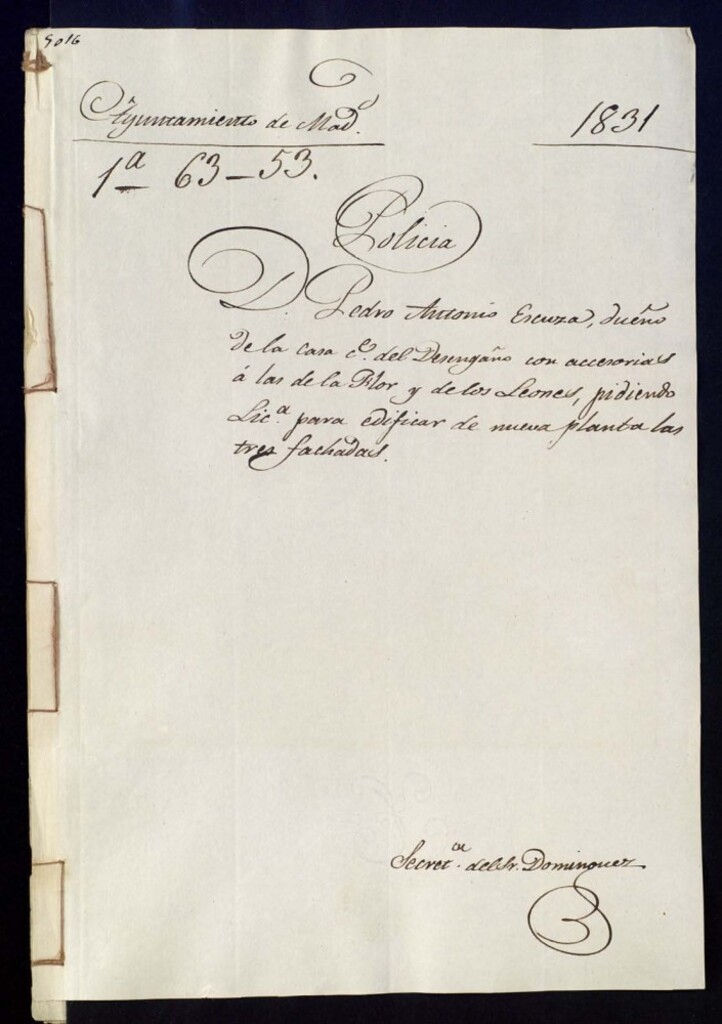 5016
Ayuntamiento de Mad.d
1831
1a 63-53.
Policia
D. Pedro Antonio Escuza, dueño
de la casa c.e del Desengaño con accesorias
á las de la Flor y de los Leones, pidiendo
Lic.a para edificar de nueva planta las
tres fachadas.
Secret.ia del Sr. Dominguez